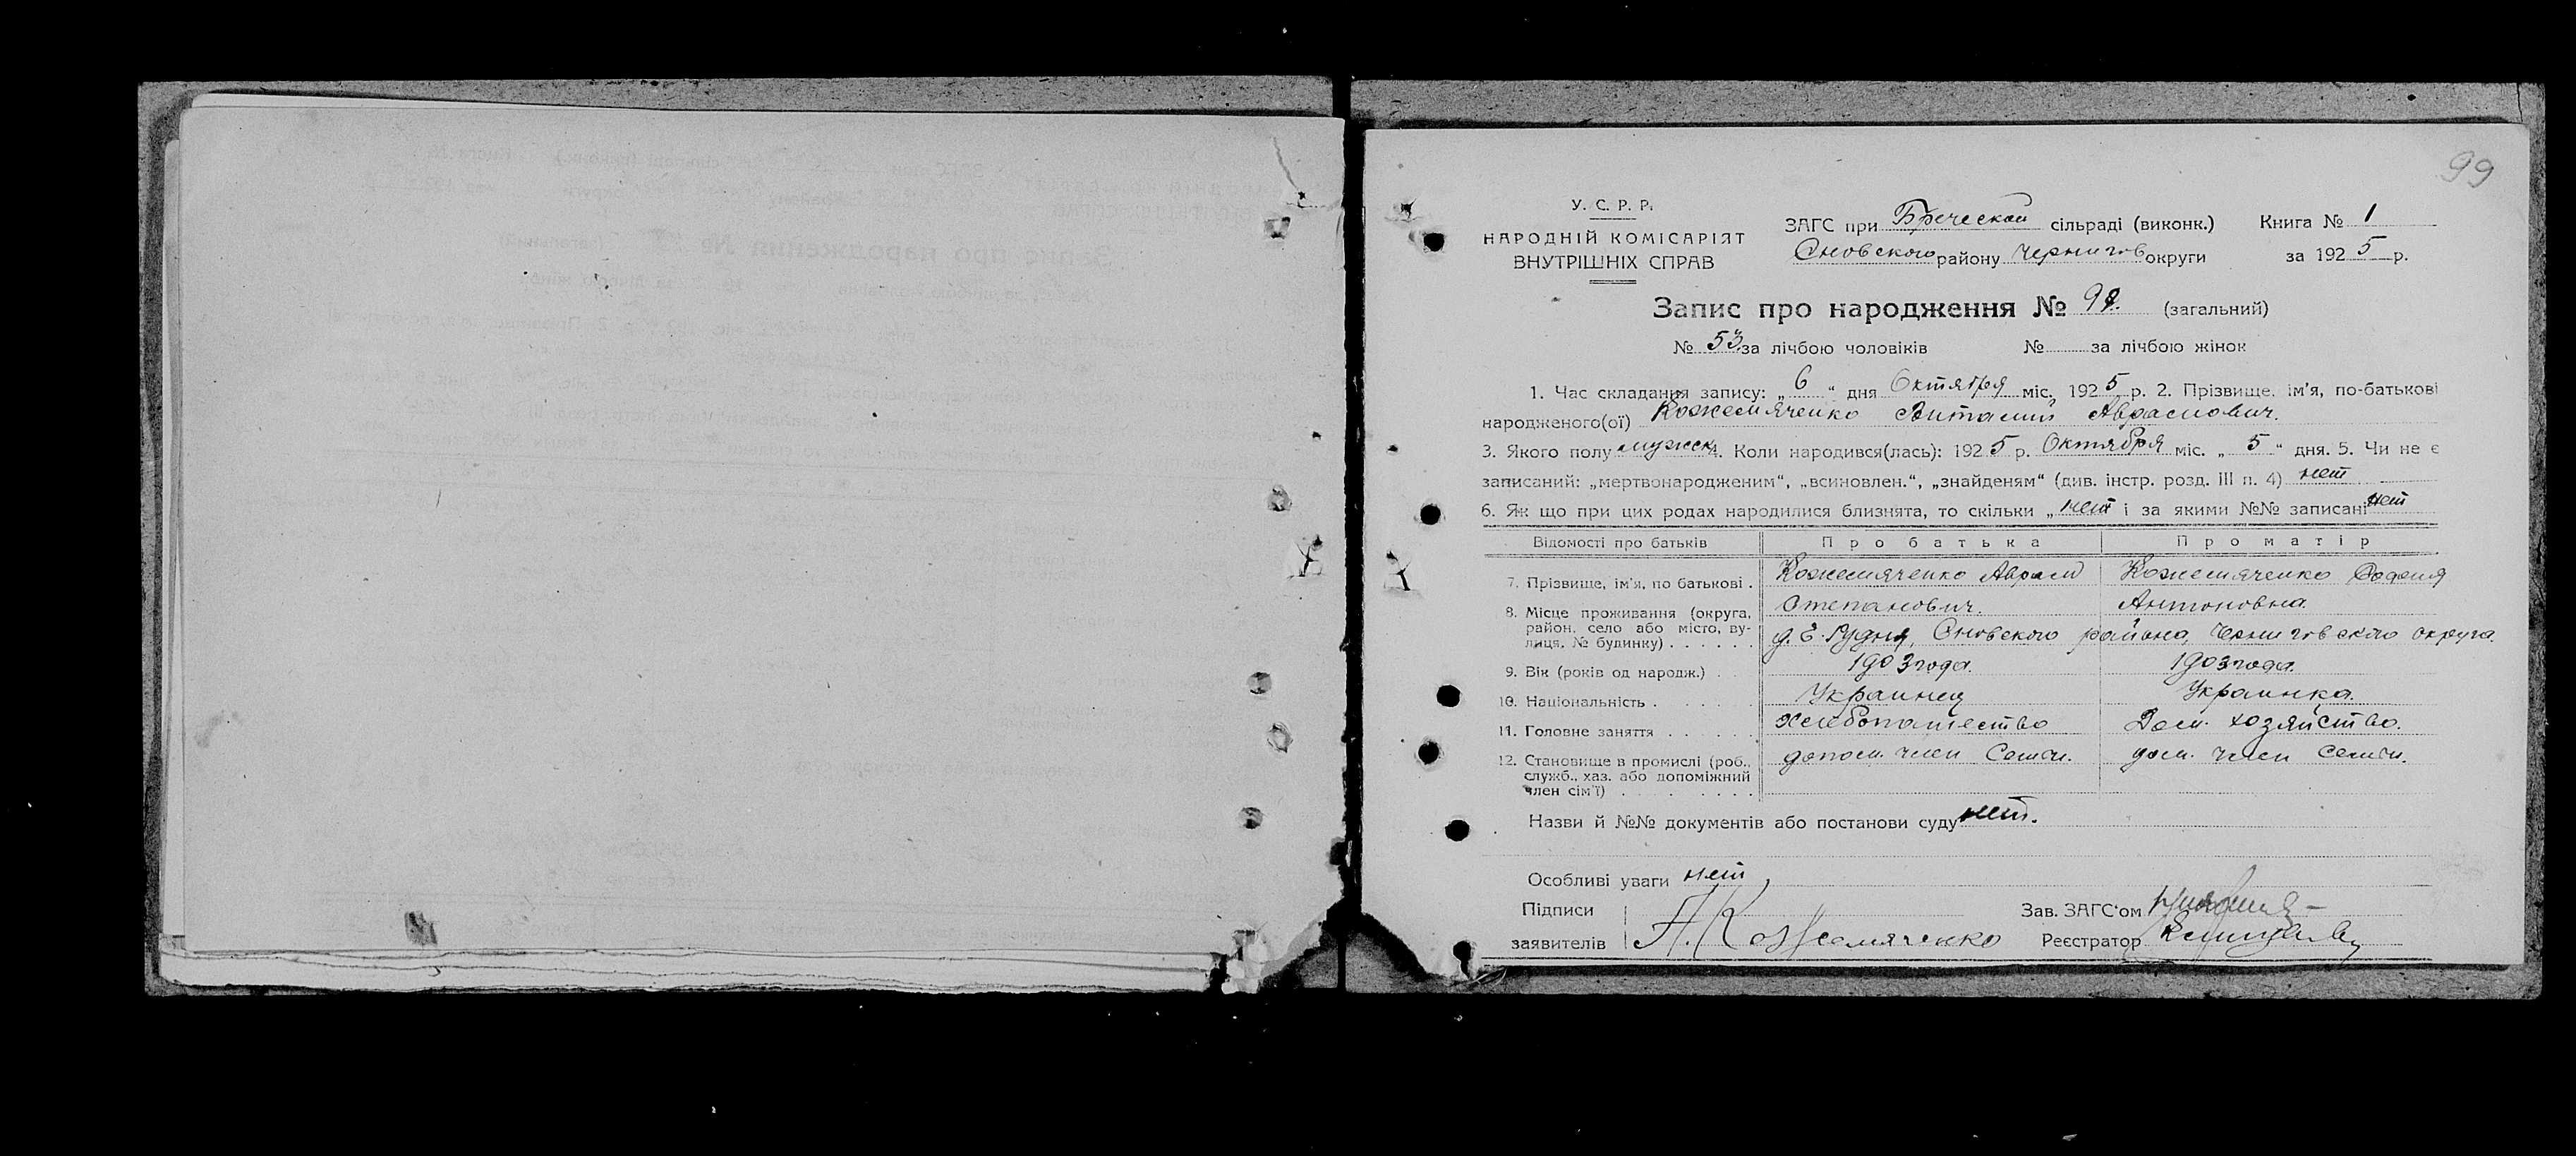 99
У. С. Р. Р.
НАРОДНІЙ КОМІСАРІЯТ
ВНУТРІШНІХ СПРАВ
ЗАГС при Бреческой сільраді (виконк.) Книга № 1
Сновского району Чернигов округи за 1925 р.
Запис про народження № 98. (загальний)
№ 53. за лічбою чоловіків № за лічбою жінок
1. Час складання запису: „ 6 “ дня Октября міс. 1925 р. 2. Прізвище, ім'я, по-батькові
народженого(ої) Кожемяченко Виталий Аврамович.
3. Якого полу мужск 4. Коли народився(лась): 1925 р. Октября міс. „ 5 “ дня. 5. Чи не є
записаний: „мертвонародженим“, „всиновлен.“, „знайденям“ (див. інстр. розд. III п. 4) нет
6. Як що при цих родах народилися близнята, то скільки „ нет і за якими №№ записані нет
Відомості про батьків Про батька Про матір
7. Прізвище, ім'я, по батькові . Кожемяченко Аврам Кожемяченко
Степанович. Антоновна.
8. Місце проживання (округа, район, село або місто, ву-
лиця, № будинку) . . . . . . д. Е. Рудня, Сновского района, Черниговского округа.
9. Вік (років од народж.) . . 1903 года. 1903 года.
10. Національність . . . . . . Украинец Украинка.
11. Головне заняття . . . . . . хлебопашество Дом. хозяйство.
12. Становище в промислі (роб., допом. член семьи. дом. член семьи.
служб., хаз. або допоміжний
член сім'ї) . . . . . . . .
Назви й №№ документів або постанови суду нет.
Особливі уваги нет
Підписи Зав. ЗАГС'ом
заявителів А. Кожемяченко Реєстратор